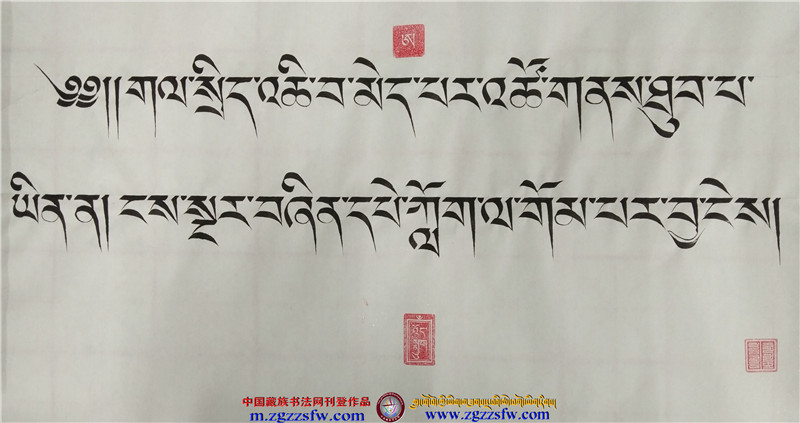 ༄༅།།གལ་སྲིད་འཆི་བ་མེད་པར་འཚོ་གནས་ཐུབ་པ་
ཡིན་ན། ངས་སྔར་བཞིན་དཔེ་ཀློག་ལ་གོམ་པར་བྱ་ངེས།
中国藏族书法网刊登作品
m.zgzzsfw.com
www.zgzzsfw.com